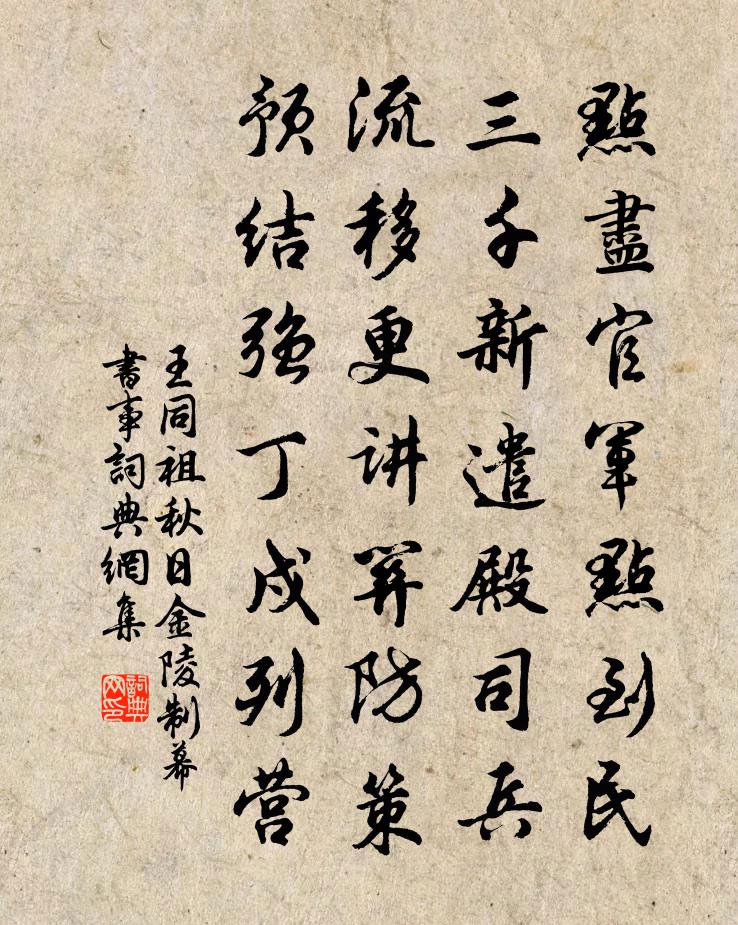 點盡官軍點到民
三千新遣殿司兵
流移更讲関防策
预结強丁戍列营
王同祖秋日金陵制幕
書事詞典網集
詞典
网印